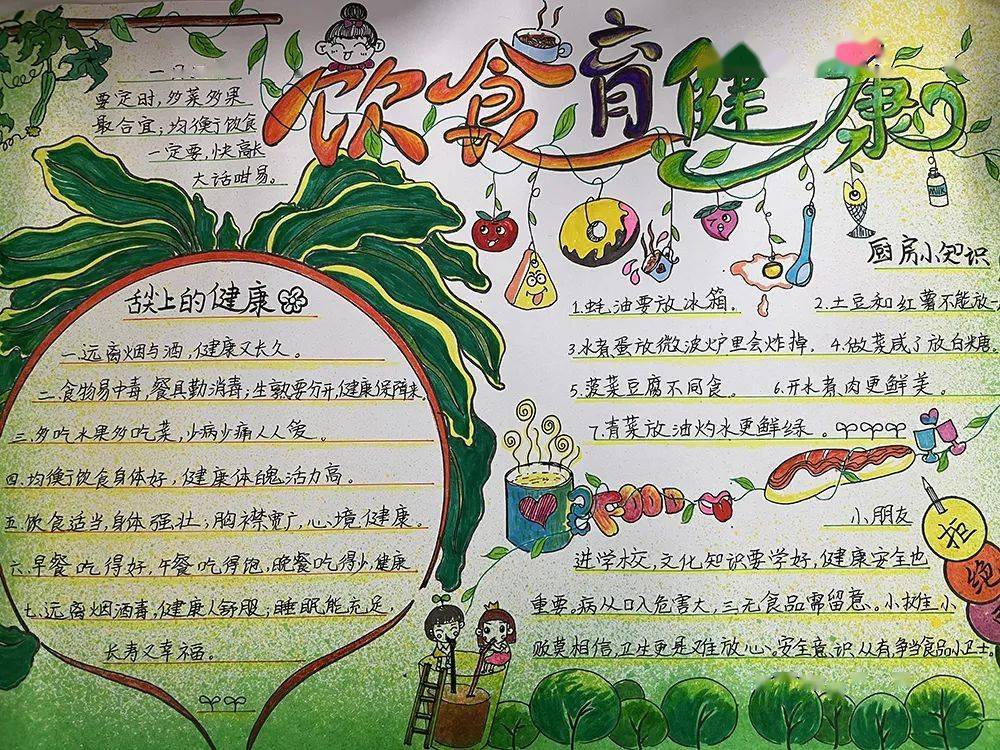 饮食育健康
要定时,多菜多果
最合宜;均衡饮食
一定要,快高长
大话咁易。
舌尖上的健康
一.远离烟与酒,健康又长久。
二.食物易中毒,餐具勤消毒;生熟要分开,健康保障来
三.多吃水果多吃菜,少病少痛人人爱。
四.均衡饮食身体好,健康体魄活力高。
五.饮食适当,身体强壮;胸襟宽广,心境健康。
六.早餐吃得好,午餐吃得饱,晚餐吃得少,健康
七.远离烟酒毒,健康人舒服;睡眠能充足,
长寿又幸福。
厨房小知识
1.蚝油要放冰箱. 2.土豆和红薯不能放一
3.水煮蛋放微波炉里会炸掉. 4.做菜咸了放白糖
5.菠菜豆腐不同食。 6.开水煮肉更鲜美。
7.青菜放油灼水更鲜绿。
FOOD
小朋友
进学校,文化知识要学好,健康安全也
重要。病从口入危害大,三无食品需留意。小摊小
贩莫相信,卫生更是难放心。安全意识从有,争当食品小卫士。
拒
绝